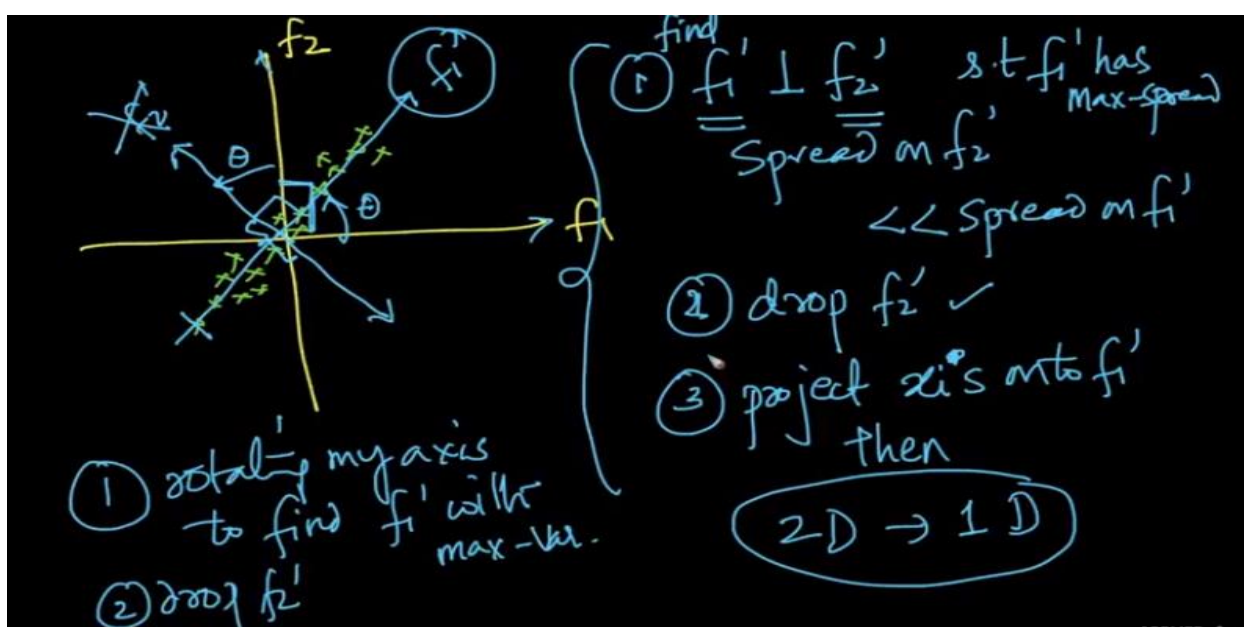 f₂
f₁'
f₂'
θ
θ
f₁
① rotating my axis
to find f₁' with
max-var.
② drop f₂'
find
① f₁' ⊥ f₂' s.t f₁' has
max-spread
Spread on f₂'
<< Spread on f₁'
② drop f₂' ✓
③ project xi's onto f₁'
then
2D → 1D